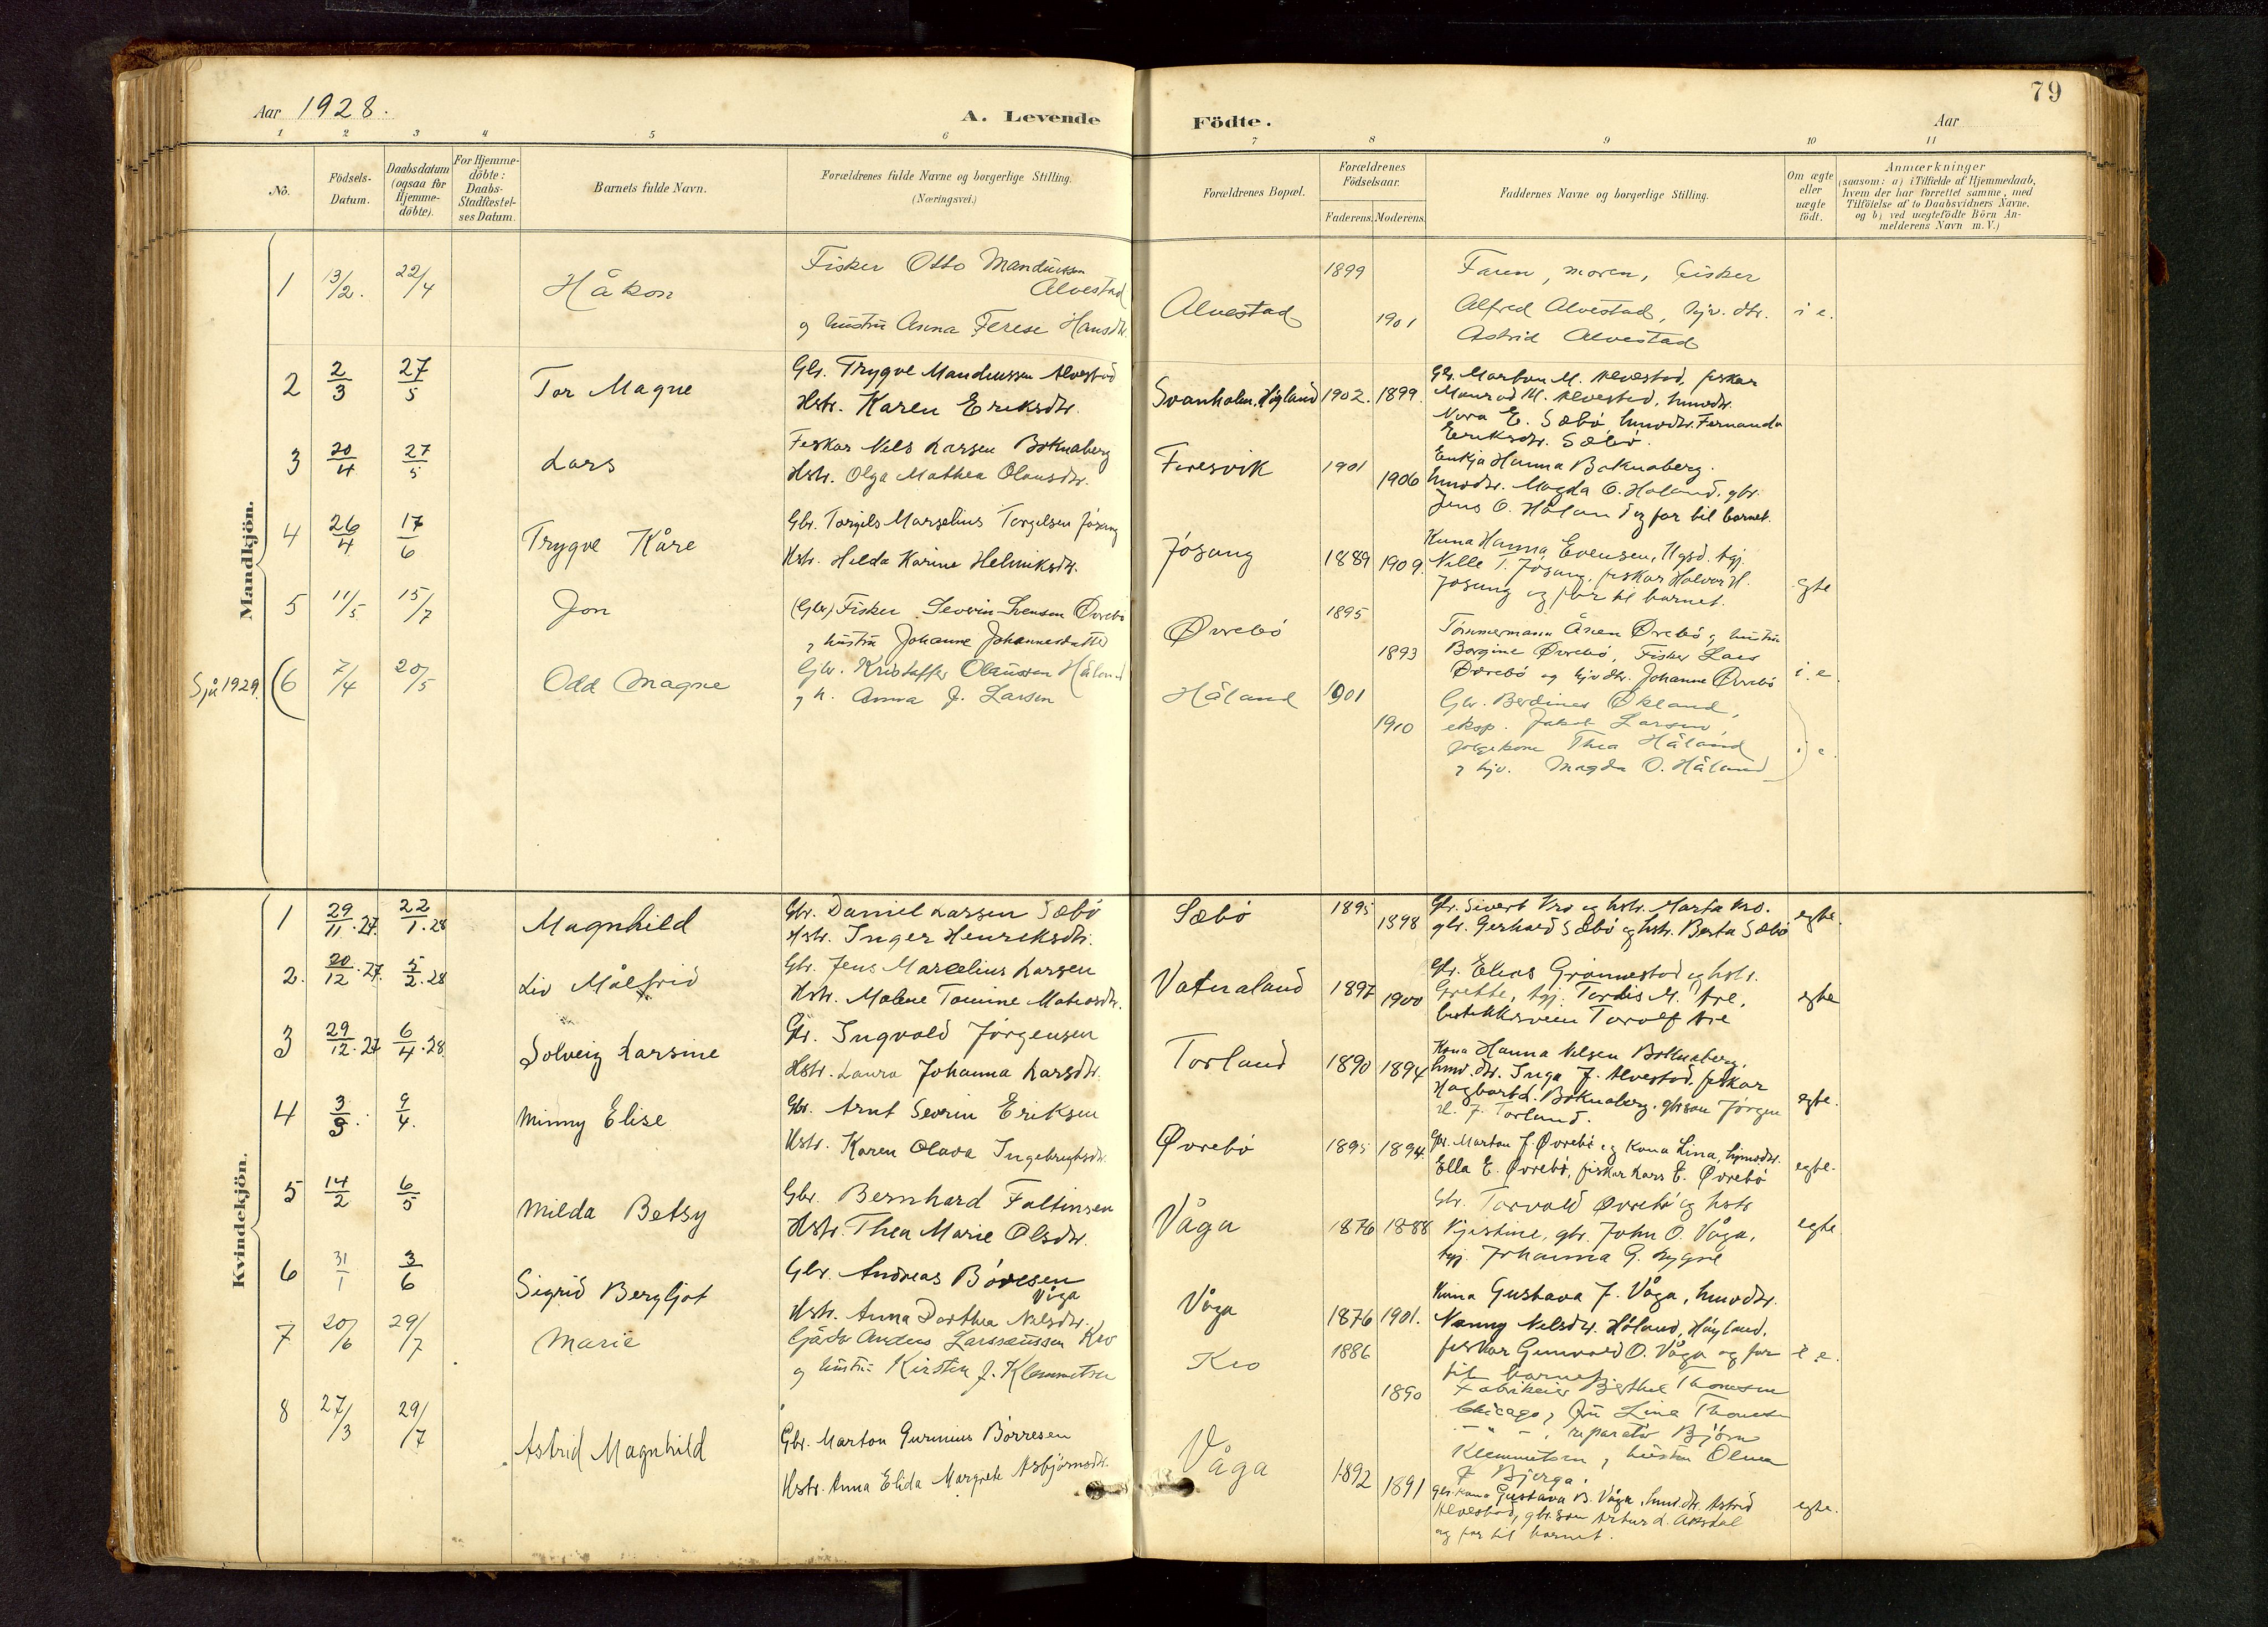 79
Aar 1928.
A. Levende Födte.
Aar
1 2 3 4 5 6 7 8 9 10 11
No.
Födsels-Datum.
Daabsdatum (ogsaa for Hjemme-döbte).
For Hjemme-döbte: Daabs-Stadfæstel-ses Datum.
Barnets fulde Navn.
Forældrenes fulde Navne og borgerlige Stilling.
(Næringsvei.)
Forældrenes Bopæl.
Forældrenes Födselsaar.
Faderens. Moderens.
Faddernes Navne og borgerlige Stilling.
Om ægte eller uægte födt.
Anmærkninger
(saasom: a) i Tilfælde af Hjemmedaab,
hvem der har forrettet samme, med
Tilföielse af to Daabsvidners Navne,
og b) ved uægtefödte Börn An-
melderens Navn m.V.)
Mandkjön.
1 13/2. 22/4 Håkon
Fisker Otto Mandussen
Alvestad
og hustru Anna Terese Hansdtr.
Alvestad 1899 1901
Faren, moren, fisker
Alfred Alvestad, hjv. dtr.
Astrid Alvestad
i e.
2 2/3 27/5 Tor Magne
Gbr. Trygve Mandussen Alvestad
Hstr. Karen Eriksdtr.
Svanholm, Högland 1902. 1899.
Gbr. Marton M. Alvestad, fiskar
Monrad M. Alvestad, husvdtr.
Nora E. Sæbö, husvdtr. Fernanda
Eriksdtr. Sæbö.
3 20/4 27/5 Lars
Feskar Nels Larsen Boknaberg
Hstr. Olga Mathea Olausdtr.
Foresvik 1901 1906
Enkja Hanna Boknaberg.
husvdtr. Magda O. Håland, gbr.
Jens O. Håland og far til barnet.
4 26/4 17/6 Trygve Kåre
Gbr. Torgils Marselius Torgelsen Jösang
Hstr. Helda Karine Helmiksdtr.
Jösang 1889 1909.
Kona Hanna Evensen,
Nille T. Jösang, feskar Halvor H.
Jösang og far til barnet.
egte
5 11/5 15/7 Jon
(Gbr) Fisker Severin Svensen Övrebö
og hustru Johanne Johannesdatter
Övrebö 1895 1893
Tömmermann Ånen Övrebö og hustru
Borgine Övrebö, Fisker Lars
Övrebö og hjv dtr. Johanne Övrebö
i e.
Sjå 1929. (6 7/4 20/5 Odd Magne
Gbr. Kristoffer Olaussen Håland
og h. Anna J. Larsen
Håland 1901 1910
Gbr. Berdines Ökland,
eksp. Jakob Larsen,
Thea Håland
og hjv. Magda O. Håland
i e.
Kvindekjön.
1 29/11.27. 22/1.28 Magnhild
Gbr. Daniel Larsen Sæbö
Hstr. Inger Henriksdtr.
Sæbö 1895 1898
Gbr. Sivert Kro og hstr. Marta Kro.
gbr. Gerhard Sæbö og hstr. Berta Sæbö
egte.
2. 20/12.27. 5/2.28 Liv Målfrid
Gbr. Jens Marcelius Larsen
Hstr. Malene Tomine Matiasdtr.
Vatnaland 1897 1900
Gbr. Elias Grönnestad og hstr.
Grette, tgj. Tordis M. Are,
Torolf Are
egte
3 29/12.27 6/4.28. Solveig Larsine
Gbr. Ingvald Jörgensen
Hstr. Laura Johanna Larsdtr.
Torland 1890 1894
Kona Hanna Nelsen Boknaberg,
husv. dtr. Inga J. Alvestad, feskar
Hagbart L. Boknaberg, gbrson Jörgen
H. J. Torland.
egte.
4 3/3. 9/4. Minny Elise
Gbr. Arnt Severin Eriksen
Hstr. Karen Olava Ingebrigtsdtr.
Övrebö 1895 1894.
Gbr. Marton J. Övrebö og Kona Lina, husvdtr.
Ella E. Övrebö, fiskar Lars E. Övrebö
egte.
5 14/2 6/5 Milda Betsy
Gbr. Bernhard Foltinsen
Hstr. Thea Marie Olsdtr.
Våga 1876 1888
Gbr. Torvald Övrebö og hstr
Kjistine, gbr. John O. Våga,
tgj. Johanna G. Lygre
egte
6 31/1 3/6 Sigrid Bergljot
Gbr. Andreas Börresen
Våga
Hstr. Anna Dorthea Nelsdtr.
Våga 1876 1901.
Kona Gustava J. Våga, husvdtr.
Nanny Nelsdtr. Håland, Högland,
feskar Gunvald O. Våga og far
til barnet
7 20/6 29/7 Marie
Gårdbr Anders Larssaussen Kro
og hustru Kirsten J. Klemmetsen
Kro 1886 1890
i e.
Fabrikeier Berthel Thomsen
Chicago, Fru Lina Thomsen
- " -, reparatör Björn
Klemmetsen, hustru Olena
J Bjerga.
8 27/3 29/7 Astrid Magnhild
Gbr. Marton Gurinius Börresen
Hstr. Anna Elida Margrete Asbjörnsdtr.
Våga 1892 1891
gbr. kona Gustava B. Våga, husv.dtr. Astrid
Alvestad, gbr. son Artur L. Aksdal
og far til barnet.
egte.